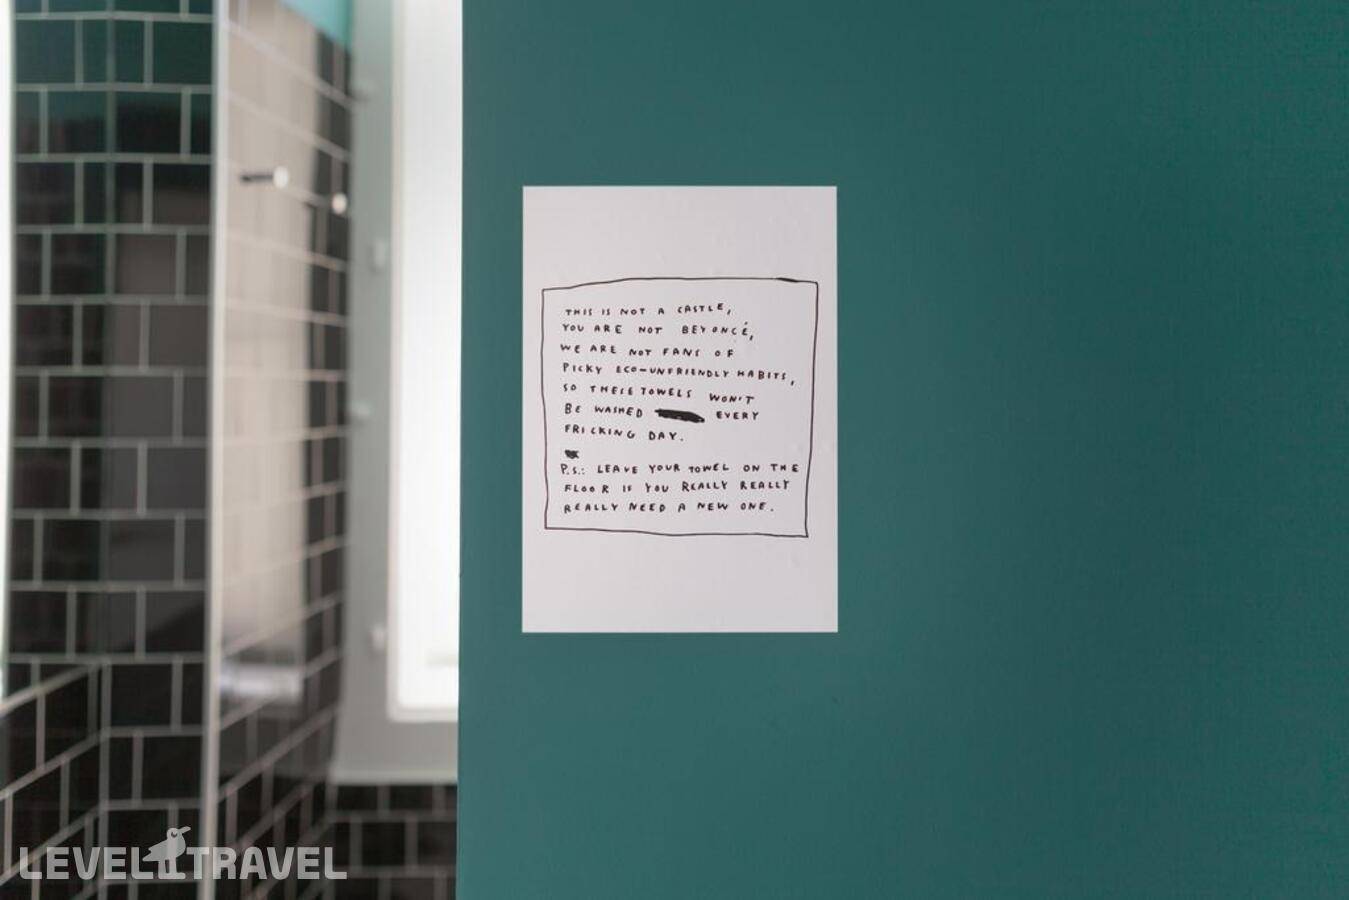 THIS IS NOT A CASTLE,
YOU ARE NOT BEYONCÉ,
WE ARE NOT FANS OF
PICKY ECO-UNFRIENDLY HABITS,
SO THESE TOWELS WON'T
BE WASHED EVERY
FRICKING DAY.
P.S.: LEAVE YOUR TOWEL ON THE
FLOOR IF YOU REALLY REALLY
REALLY NEED A NEW ONE.
LEVEL TRAVEL